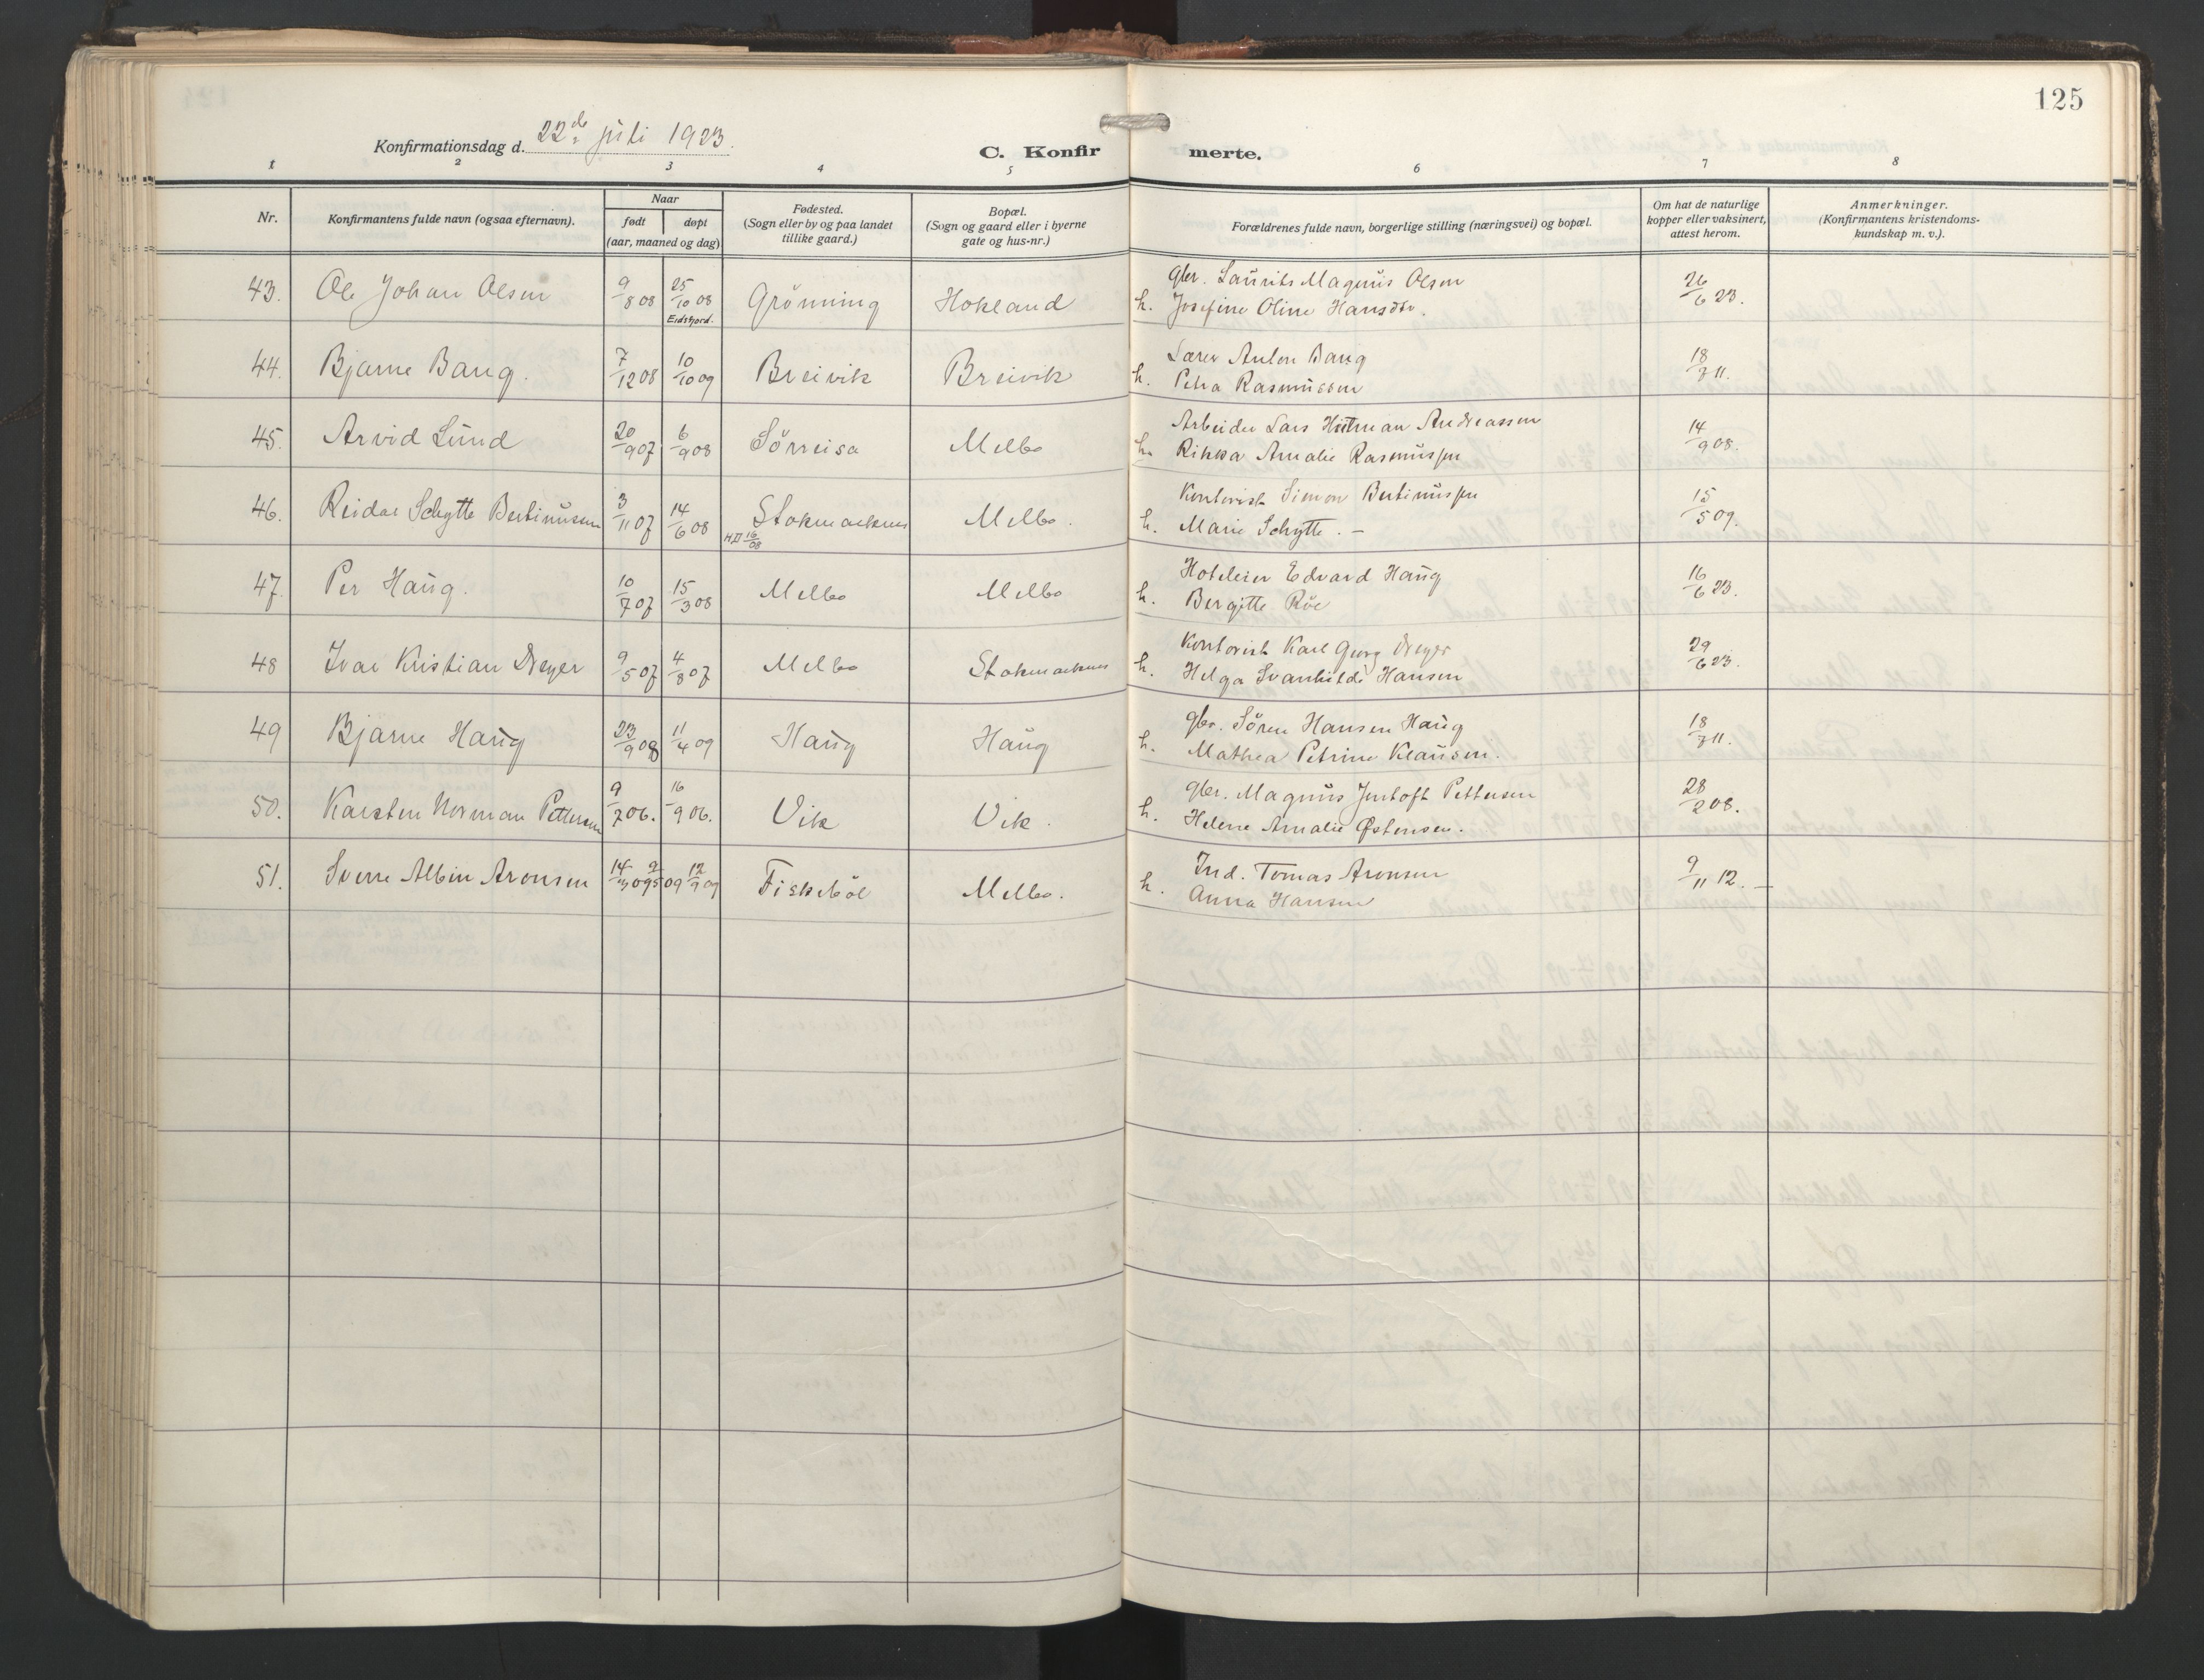 125
Konfirmationsdag d. 22de juli 1923.
C. Konfirmerte.
1 2 3 4 5 6 7 8
Nr. Konfirmantens fulde navn (ogsaa efternavn). Naar født døpt (aar, maaned og dag) Fødested. (Sogn eller by og paa landet tillike gaard.) Bopæl. (Sogn og gaard eller i byerne gate og hus-nr.) Forældrenes fulde navn, borgerlige stilling (næringsvei) og bopæl. Om hat de naturlige kopper eller vaksinert, attest herom. Anmerkninger. (Konfirmantens kristendomskundskap m. v.).
43. Ole Johan Olsen 9/8 08 25/10 08 Eidsfjord. Grönning Hokland Gbr. Laurits Magnus Olsen 26/6 23.
h. Josefine Oline Hansdtr.
44. Bjarne Bang. 7/12 08 10/10 09 Breivik Breivik Lærer Anton Bang 18/7 11.
h. Petra Rasmussen
45. Arvid Lund 20/9 07 6/9 08 Sörreisa Melbo Arbeider Lars Hitman Andreassen 14/9 08.
h. Rikka Amalie Rasmussen
46. Reidar Schytte Bertinussen 3/11 07 14/6 08 Stokmarknes H,D 16/08 Melbo. Kontorist Simon Bertinussen 15/5 09.
h. Marie Schytte. –
47. Per Haug. 10/7 07 15/3 08 Melbo Melbo Hoteleier Edvard Haug 16/6 23.
h. Bergitte Röe
48 Ivar Kristian Dreyer 9/5 07 4/8 07 Melbo Stokmarknes Kontorist Karl Georg Dreyer 29/6 23.
h. Helga Svanhilde Hansen
49 Bjarne Haug 23/9 08 11/4 09 Haug Haug Gbr. Sören Hansen Haug 18/7 11.
h. Mathea Petrine Klausen.
50. Karsten Norman Pettersen 9/7 06. 16/9 06. Vik Vik. Gbr. Magnus Jentoft Pettersen 28/2 08.
h. Helene Amalie Østensen.
51. Sverre Albin Aronsen 14/3 09 9/5 09 12/9 09 Fiskeböl Melbo. Ind. Tomas Aronsen 9/11 12. –
h. Anna Hansen